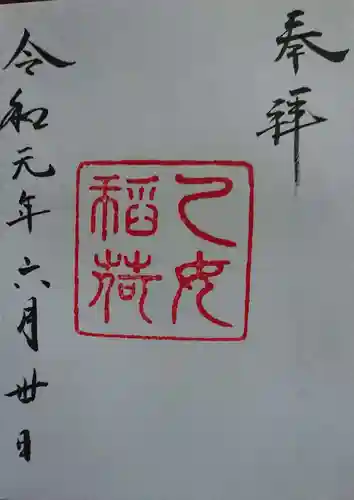 奉拝
乙女
稲荷
令和元年六月卅日